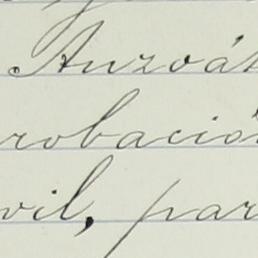 Anzoát
robación
vil, par